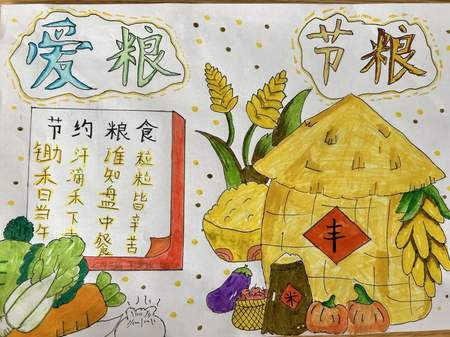 爱粮
节粮
节约粮食
锄禾日当午
汗滴禾下土
谁知盘中餐
粒粒皆辛苦
丰
米